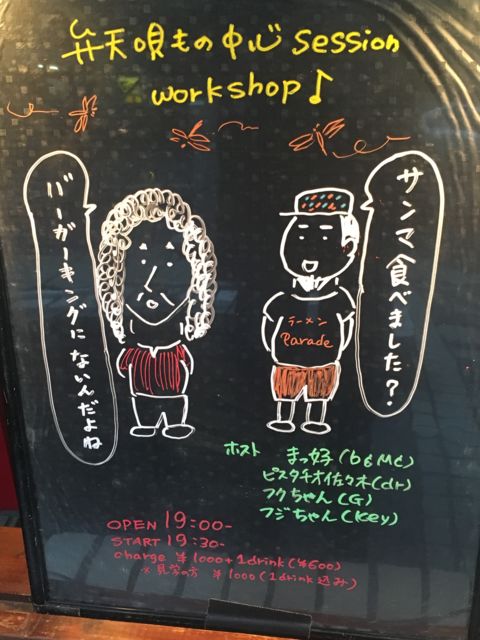 弁天唄もの中心 session
workshop♪
サンマ食べました?
バーガーキングにないんだよね
ラーメン
Parade
ホスト まっ好(b&Mc)
ピスタチオ佐々木(dr)
フクちゃん(G)
フジちゃん(key)
OPEN 19:00-
START 19:30-
charge ¥1000+1drink(¥600)
※見学の方 ¥1000(1drink込み)